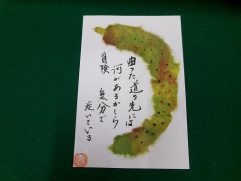 曲った道の先には
何があるかしら
冒険 気分で
歩いている